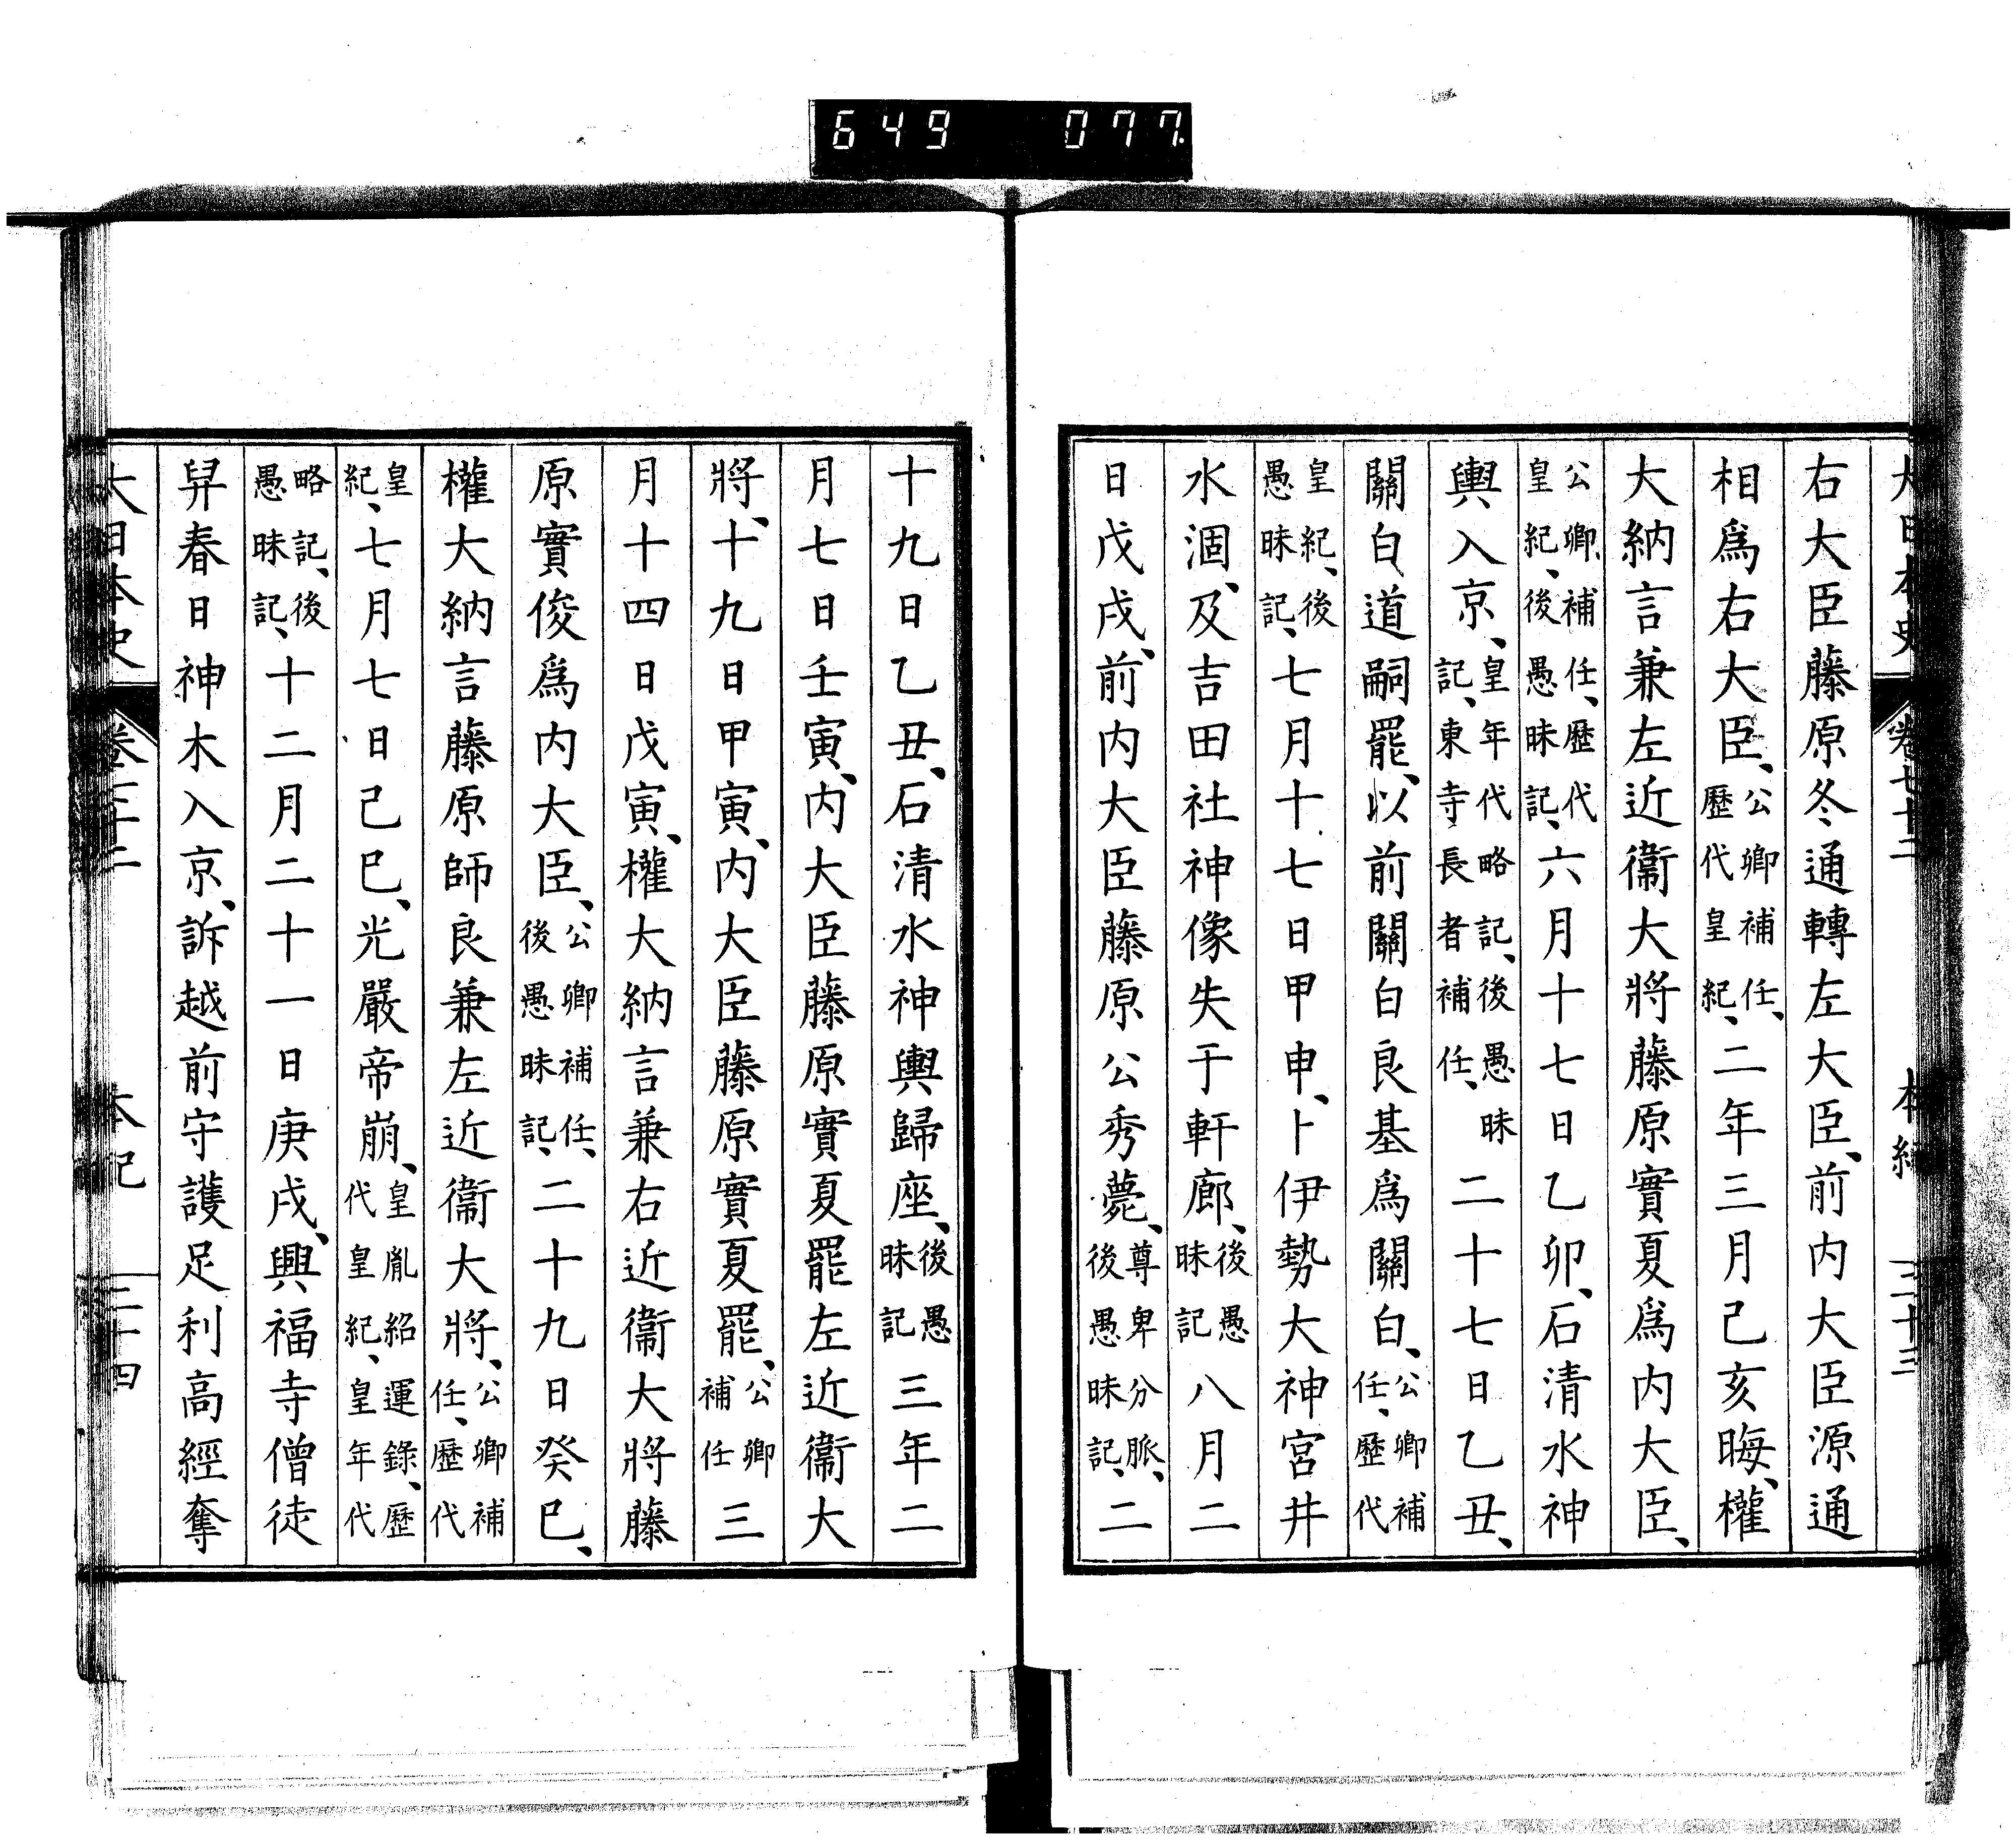 649 077
大日本史 卷七十二 本紀 三十三
右大臣藤原冬通轉左大臣、前内大臣源通
相爲右大臣、公卿補任、歷代皇紀、二年三月己亥晦、權
大納言兼左近衞大將藤原實夏爲内大臣、
公卿補任、歷代皇紀、後愚昧記、六月十七日乙卯、石清水神
輿入京、皇年代略記、後愚昧記、東寺長者補任、二十七日乙丑、
關白道嗣罷、以前關白良基爲關白、公卿補任、歷代
皇紀、後愚昧記、七月十七日甲申、卜伊勢大神宮井
水涸、及吉田社神像失于軒廊、後愚昧記八月二
日戊戌、前内大臣藤原公秀薨、尊卑分脈、後愚昧記、二
十九日乙丑、石清水神輿歸座、後愚昧記三年二
月七日壬寅、内大臣藤原實夏罷左近衞大
將、十九日甲寅、内大臣藤原實夏罷、公卿補任三
月十四日戊寅、權大納言兼右近衞大將藤
原實俊爲内大臣、公卿補任、後愚昧記、二十九日癸巳、
權大納言藤原師良兼左近衞大將、公卿補任、歷代
皇紀、七月七日己巳、光嚴帝崩、皇胤紹運錄、歷代皇紀、皇年代
略記、後愚昧記、十二月二十一日庚戌、興福寺僧徒
舁春日神木入京、訴越前守護足利高經奪
大日本史 卷 本紀 三十四